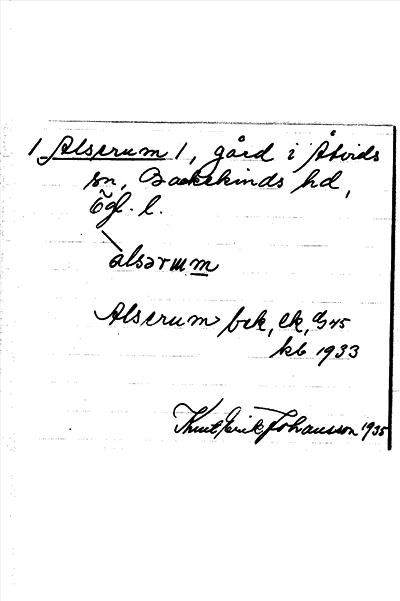 / Alserum /, gård i Åtvids
sn, Bankekinds hd,
Ögl. l.
alsərum
Alserum bek, ek, G45
kb 1933
Knut Erik Johansson 1935